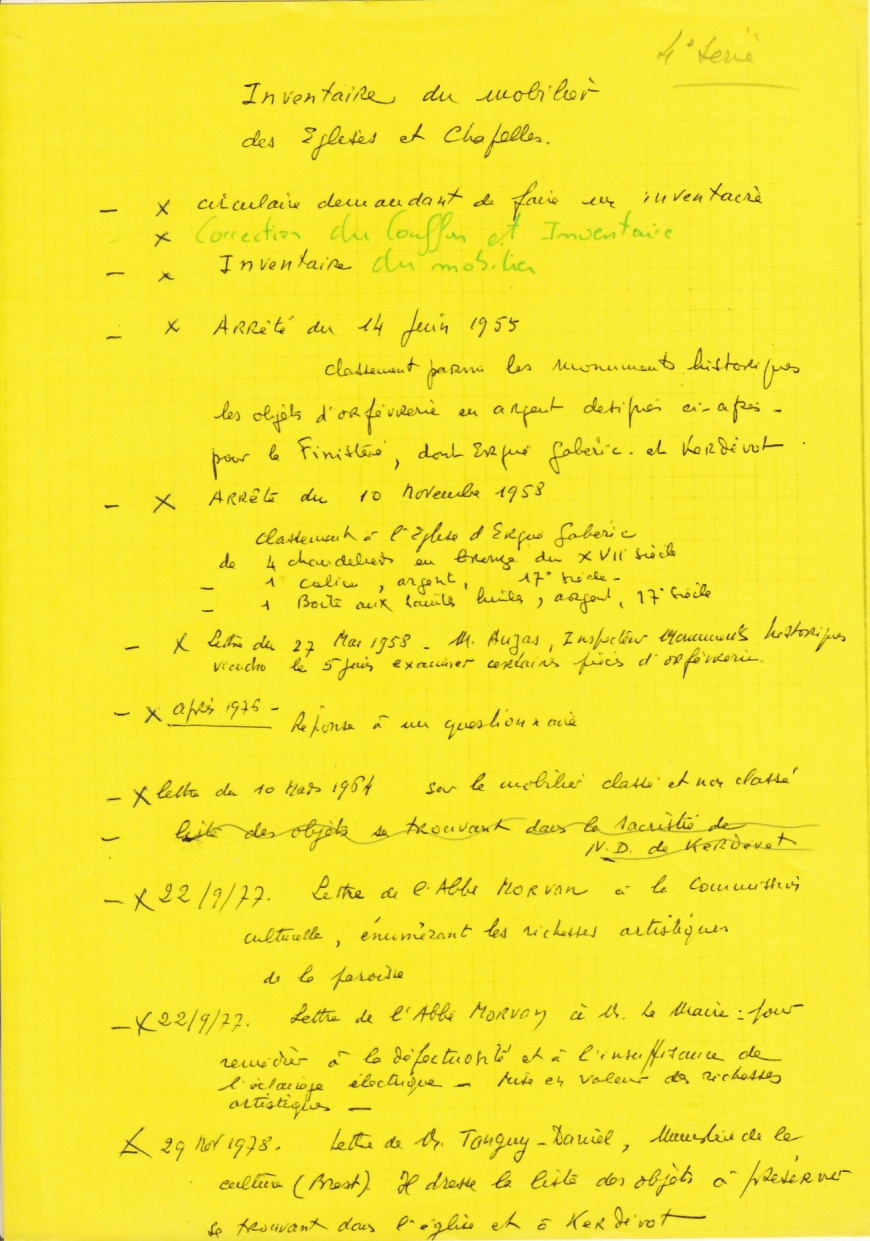 4° Serie
Inventaire du mobilier
des Eglises et Chapelles.
- x circulaire demandant de faire un inventaire
x Correction du Couffon et Inventaire
- x Inventaire du mobilier
- x ARRêté du 14 Juin 1955
classement parmi les monuments historiques
les objets d'orfévrerie en argent designés ci-après -
pour le Finistère, dont Ergué Gabéric. et Kerdévot
- x ARRêté du 10 Novembre 1958
classement à l'Eglise d'Ergué Gabéric
de 4 chandeliers en bronze du XVIIè siècle
- 1 calice, argent, 17° siècle -
- 1 Boîte aux saintes huiles, argent, 17° siècle
- x Lettre du 27 Mai 1958 - M. Auzas, Inspecteur Monuments historiques
viendra le 5 juin examiner certaines pièces d'orfévrerie.
- x après 1976 - Réponse à un questionnaire
- x lettre du 10 Mars 1964 sur le mobilier classé et non classé
- liste des objets se trouvant dans la sacristie de
N.D. de Kerdévot
- x 22/9/77. Lettre de l'Abbé MORVAN à la Commission
culturelle, énumérant les richesses artistiques
de la paroisse
- x 22/9/77. Lettre de l'Abbé MORVAN à M. le Maire : pour
remédier à la défectuosité et à l'insuffisance de
l'éclairage électrique - Mise en valeur des richesses
artistiques -
- x 29 Nov 1978. Lettre de M. Tanguy-Daniel, de la
culture (Brest). Il dresse la liste des objets à préserver
se trouvant dans l'église et à Kerdévot